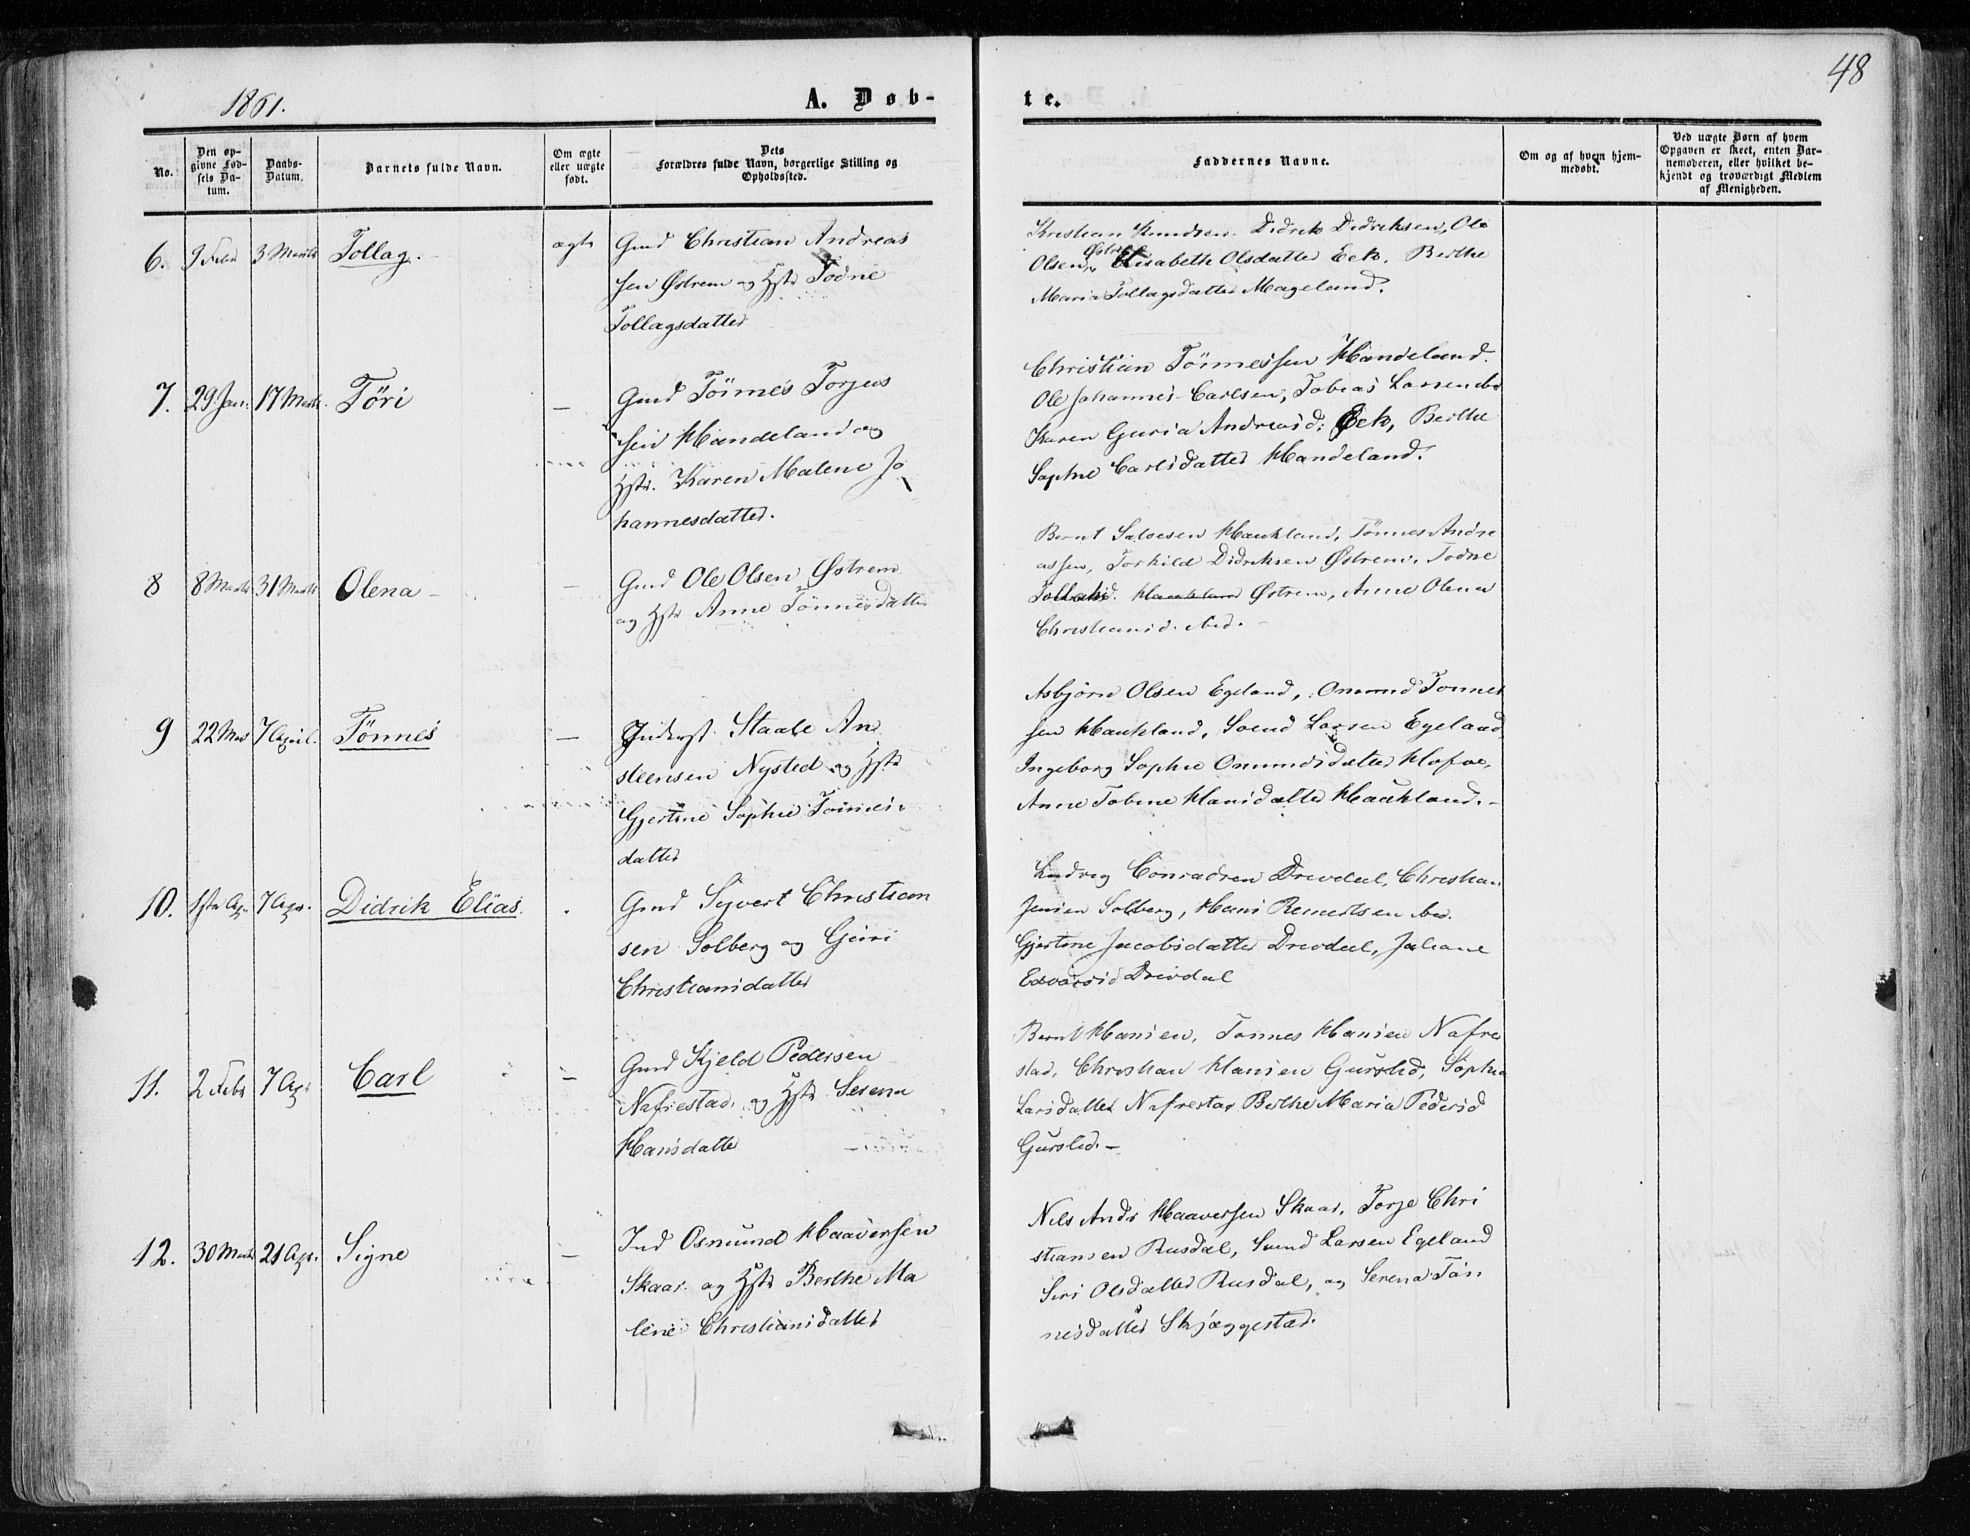 48
1861.
A. Døb-
te.
No.
Den op-
givne Fød-
sels Da-
tum.
Daabs-
Datum.
Barnets fulde Navn.
Om ægte
eller uægte
født.
Dets
Forældres fulde Navn, borgerlige Stilling og
Opholdssted.
Faddernes Navne.
Om og af hvem hjem-
medøbt.
Ved uægte Børn af hvem
Opgaven er skeet, enten Bar-
nemoderen, eller hvilket be-
kjendt og troværdigt Medlem
af Menigheden.
6. 9 Febr 3 Marts Tollag. ægte
Gmd Christian Andreas
sen Østrem og Hstr Todne
Tollagsdatter
Kristian Knudsen. Didrik Didriksen, Ole
Olsen Østrem Elisabeth Olsdatter Eek. Berthe
Maria Tollagsdatter Mageland.
7. 29 Jan. 17 Marts. Töri —
Gmd Tönnes Torjus
sen Handeland og
Hstr. Karen Malene Jo
hannesdatter.
Christian Tönnessen Handeland.
Ole Johannes Carlsen, Tobias Larsen ibd
Karen Guria Andreasd: Eek, Berthe
Sophie Carlsdatter Handeland.
8 8 Marts 31 Marts Olena —
Gmd Ole Olsen Østrem
og Hstr Anne Tönnesdatter
Bernt Salvesen Haukland, Tönnes Andre
assen, Torkild Didriksen Østrem, Todne
Tollaksd. Haukland Østrem, Anne Olena
Christiansd. ibd. —
9 22 Mar 7 April. Tönnes —
Inderst Staale An
steensen Nysted og Hstr
Gjertine Sophie Tönnes-
datter
Asbjörn Olsen Egeland, Omund Tonnes
sen Haukland, Svend Larsen Egeland
Ingeborg Sophie Omundsdatter Hafsøe,
Anne Tobine Hansdatter Haukland. —
10. 1ste Apr. 7 Apr. Didrik Elias.
Gmd Syvert Christian
sen Solberg og Guri
Christiansdatter
Ludvig Conradsen Drevdal, Christian
Jensen Solberg, Hans Reinertsen ibd.
Gjertine Jacobsdatter Drevdal, Juliane
Edvarsd Drevdal
11. 2 Febr 7 Apr Carl —
Gmd Kjeld Pedersen
Nafrestad og Hstr Serena
Hansdatter
Bernt Hansen, Tonnes Hansen Nafre
stad, Christian Hansen Gursled, Sophie
Larsdatter Nafrestad Berthe Maria Pedersd
Gursled. —
12. 30 Marts 21 Apr. Signe —
Ind Osmund Haaversen
Skaar og Hstr Berthe Ma
lene Christiansdatter
Nils Andr Haaversen Skaar, Torje Chri
stiansen Rusdal, Svend Larsen Egeland
Siri Olsdatter Rusdal, og Serena Tön
nesdatter Skjæggestad.